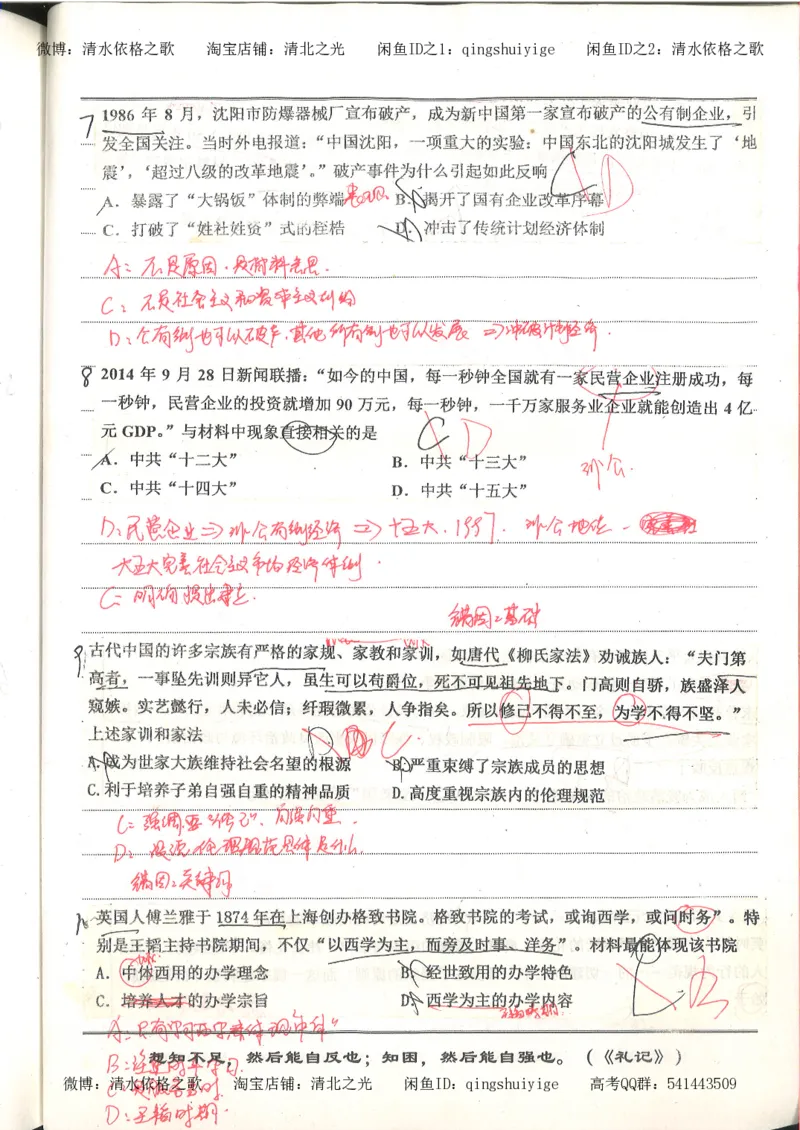 微博：清水依格之歌 淘宝店铺：清北之光 闲鱼ID之1：qingshuiyige 闲鱼ID之2：清水依格之歌
7 1986 年 8 月，沈阳市防爆器械厂宣布破产，成为新中国第一家宣布破产的公有制企业，引
发全国关注。当时外电报道：“中国沈阳，一项重大的实验：中国东北的沈阳城发生了‘地
震’，‘超过八级的改革地震’。”破产事件为什么引起如此反响
C D
A．暴露了“大锅饭”体制的弊端 表现 B．揭开了国有企业改革序幕
C．打破了“姓社姓资”式的桎梏 D．冲击了传统计划经济体制
A：不是原因，是材料意思．
C：不是社会主义和资本主义纠纷
D：公有制也可以破产，其他所有制也可以发展 ⇒冲破计划经济．
8 2014 年 9 月 28 日新闻联播：“如今的中国，每一秒钟全国就有一家民营企业注册成功，每
一秒钟，民营企业的投资就增加 90 万元，每一秒钟，一千万家服务业企业就能创造出 4 亿
元 GDP。”与材料中现象直接相关的是
C D
A．中共“十二大” B．中共“十三大” 非公．
C．中共“十四大” D．中共“十五大”
D：民营企业⇒非公有制经济 ⇒十五大．1997． 非公地位
十五大完善社会主义市场经济体制．
C：明确提出建立．
错因：基础
9 古代中国的许多宗族有严格的家规、家教和家训，如唐代《柳氏家法》劝诫族人：“夫门第
高者，一事坠先训则异它人，虽生可以苟爵位，死不可见祖先地下。门高则自骄，族盛泽人
窥嫉。实艺懿行，人未必信；纤瑕微累，人争指矣。所以修己不得不至，为学不得不坚。”
上述家训和家法
D C
A.成为世家大族维持社会名望的根源 B.严重束缚了宗族成员的思想
C.利于培养子弟自强自重的精神品质 D.高度重视宗族内的伦理规范
C：强调要“修己”，自强自重．
D：没说伦理规范具体是什么
错因：关键词
10 英国人傅兰雅于 1874 年在上海创办格致书院。格致书院的考试，或询西学，或问时务”。特
别是王韬主持书院期间，不仅“以西学为主，而旁及时事、洋务”。材料最能体现该书院
A．中体西用的办学理念 B．经世致用的办学特色
C．培养人才的办学宗旨 D．西学为主的办学内容
B
想知不足，然后能自反也；知困，然后能自强也。（《礼记》）
微博：清水依格之歌 淘宝店铺：清北之光 闲鱼ID：qingshuiyige 高考QQ群：541443509
D：王韬时期．